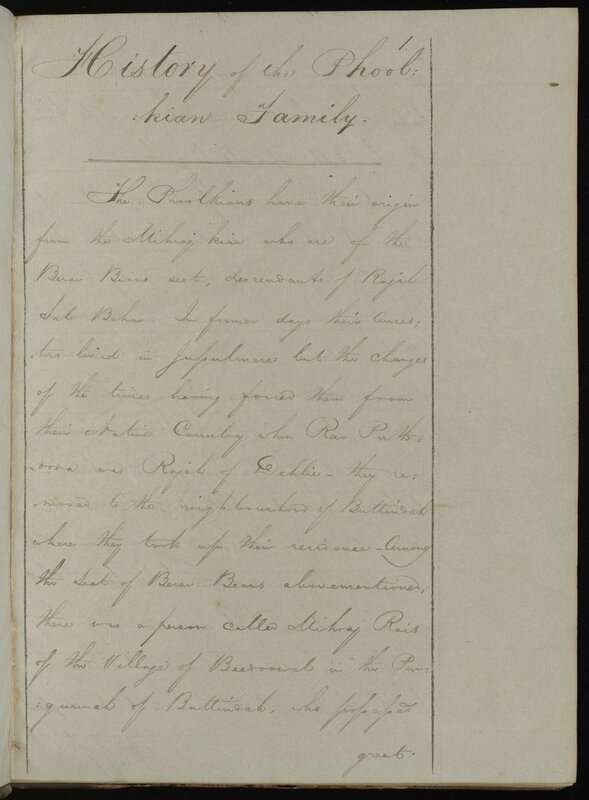 History of the Phool:
:kian Family.
The Phoolkians have their origin
from the Mihraj kian who are of the
Berar Bians sect, descendants of Rajah
Sal Bahan. In former days their Ances:
:tors lived in Jupulmere but the changes
of the times having forced them from
their Native Country when Rao Pitho:
:ora was Rajah of Dehlie – they re:
:moved to the neighbourhood of Buttindah
where they took up their residence – Among
the Sect of Berar Beans abovementioned,
there was a person called Mihraj Rais
of the Village of Beedoowal in the Pur:
:gunnah of Buttindah, who possessed
great